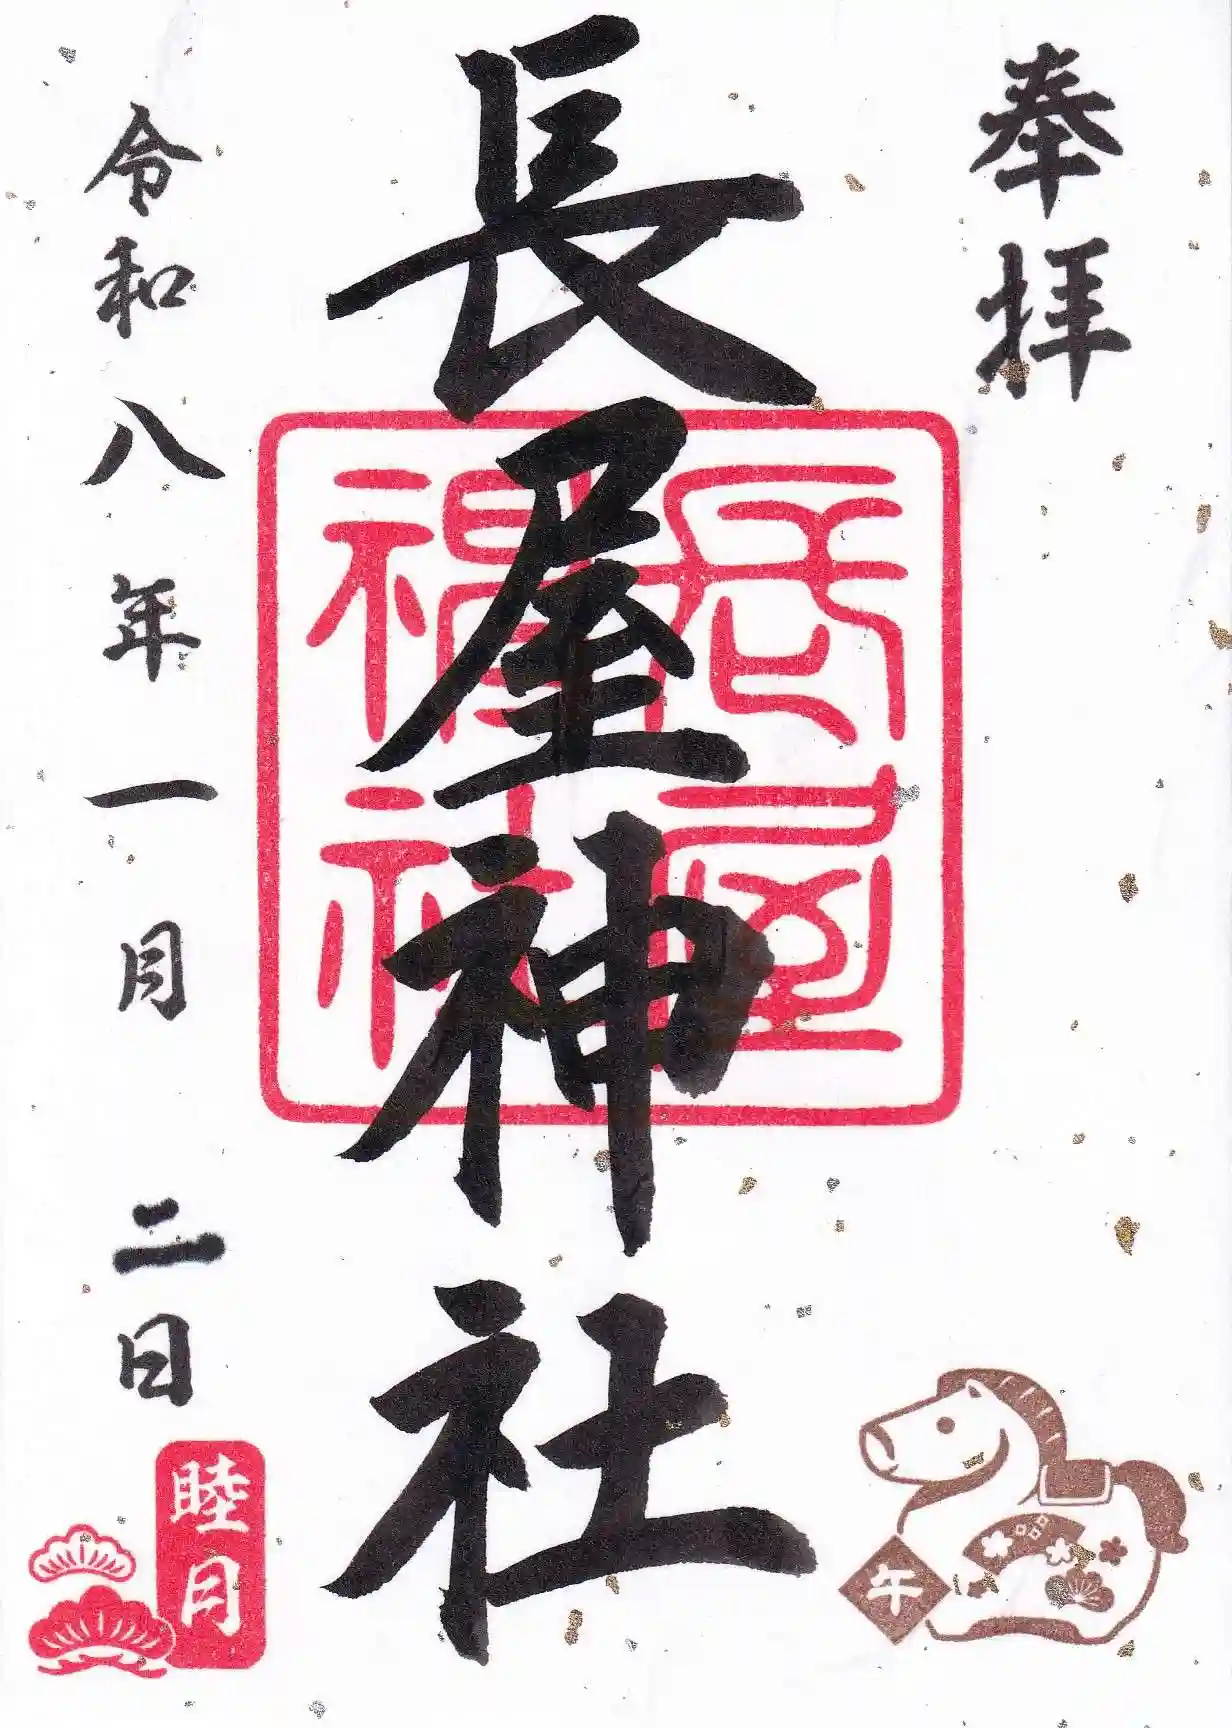 奉拝
長屋神社
長屋
神社
令和八年一月二日
睦月
午